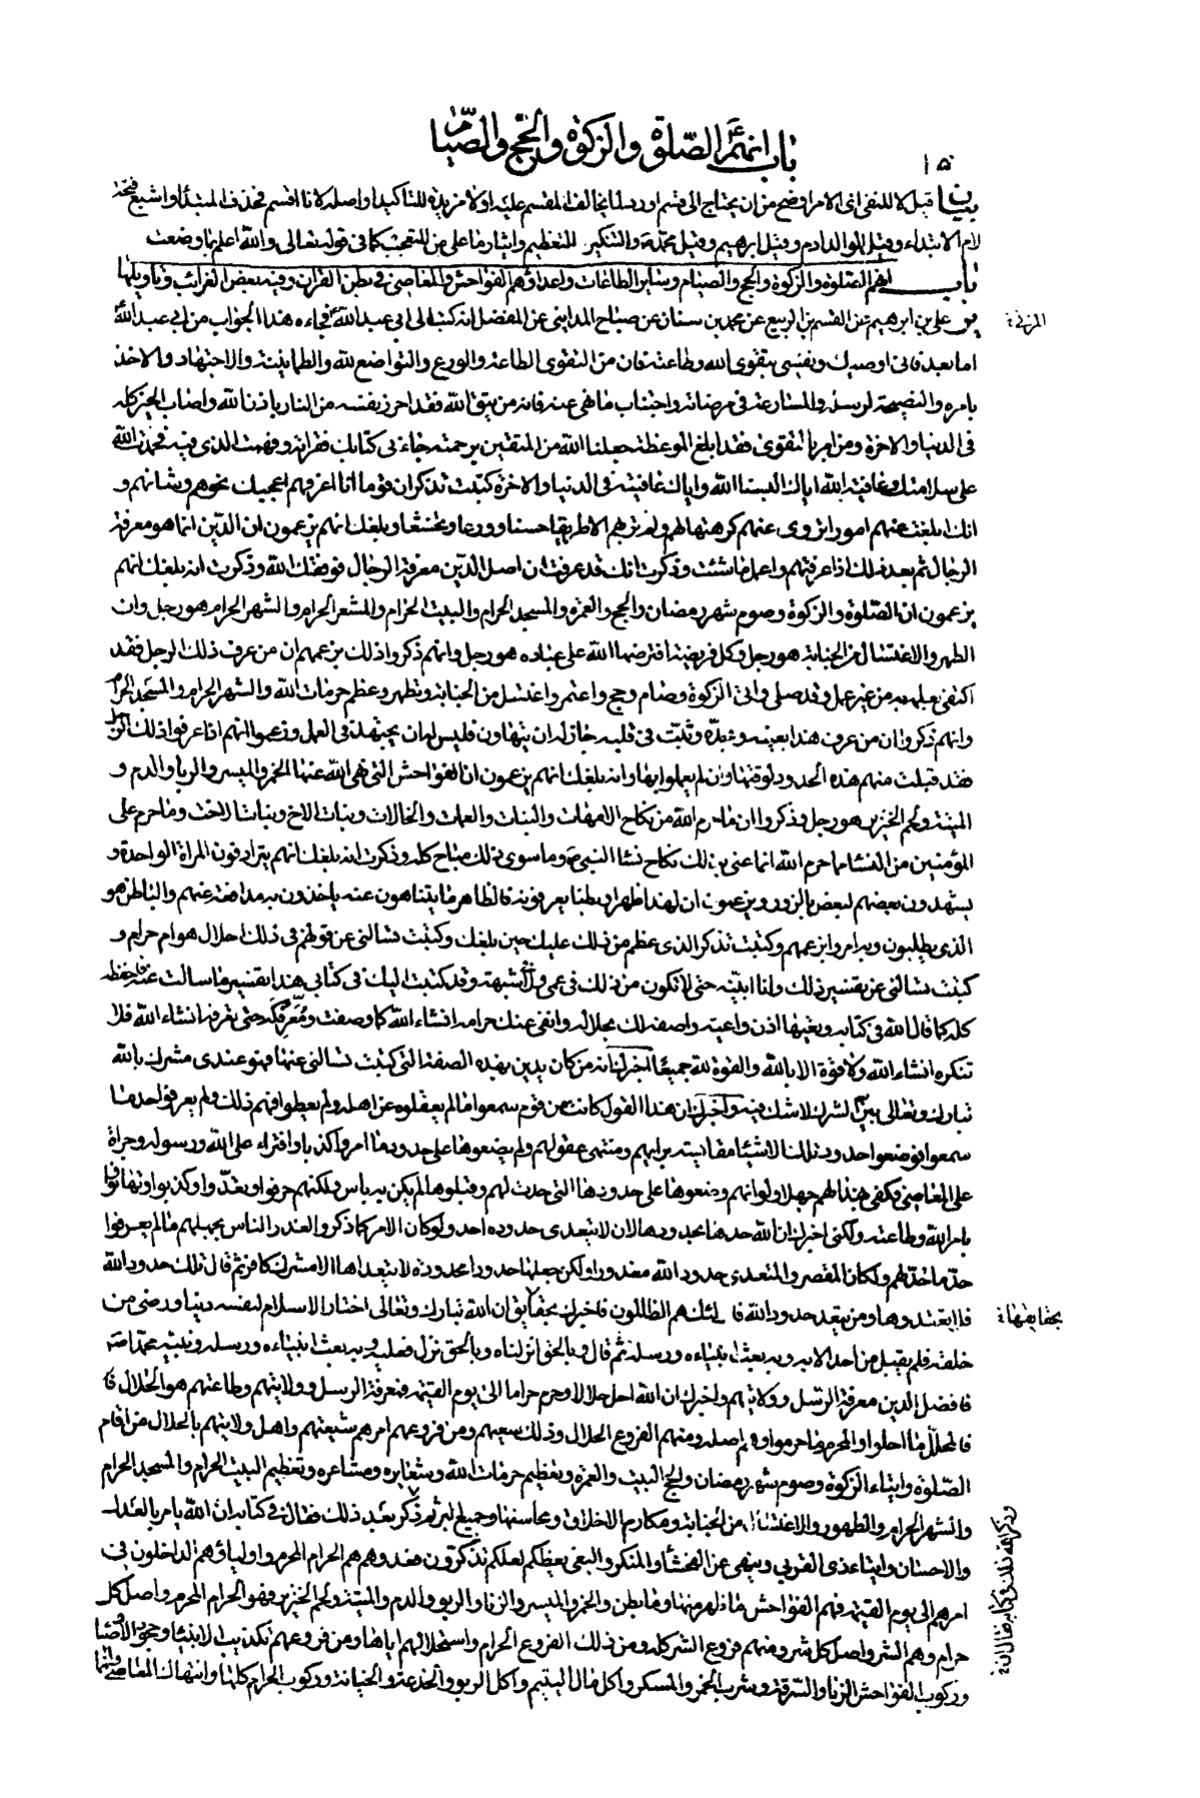 باب انهم الصلوة والزكوة والحج والصيام
١٥٠
بيان قيل لا للنفي اذ الامر اوضح من ان يحتاج الى قسم او رد لما يخالف المقسم عليه او لا مزيدة للتأكيد او اصله لانا اقسم فحذف المبتدأ واشبع فتحة
لام الابتداء وقيل الوالد ادم وقيل ابرهيم وقيل محمد والتنكير للتعظيم وايثار ما على من للتعجب كما في قوله تعالى والله اعلم بما وضعت
باب انهم الصلوة والزكوة والحج والصيام وساير الطاعات واعداؤهم الفواحش والمعاصي في بطن القران وفيه بعض الغرائب وتاويلها
ير علي بن ابرهيم عن القسم بن الربيع عن محمد بن سنان عن صباح المدايني عن المفضل انه كتب الى ابي عبد الله فجاءه هذا الجواب من ابي عبد الله
اما بعد فاني اوصيك ونفسي بتقوى الله وطاعته فان من التقوى الطاعة والورع والتواضع لله والطمانينة والاجتهاد والاخذ
بامره والنصيحة لرسله والمسارعة في مرضاته واجتناب ما نهى عنه فانه من يتق الله فقد احرز نفسه من النار باذن الله واصاب الخير كله
في الدنيا والاخرة ومن امر بالتقوى فقد ابلغ الموعظة جعلنا الله من المتقين برحمته جاءني كتابك فقراته وفهمت الذي فيه فحمدت الله
على سلامتك وعافية الله اياك البسنا الله واياك عافيته في الدنيا والاخرة كتبت تذكر ان قوما انا اعرفهم اعجبك نحوهم وشانهم و
انك ابلغت عنهم امورا تروى عنهم كرهتها لهم ولم تر بهم الا طريقا حسنا وورعا وتخشعا وبلغك انهم يزعمون ان الدين انما هو معرفة
الرجال ثم بعد ذلك اذا عرفتهم فاعمل ما شئت وذكرت انك قد عرفت ان اصل الدين معرفة الرجال فوفقك الله وذكرت انه بلغك انهم
يزعمون ان الصلوة والزكوة وصوم شهر رمضان والحج والعمرة والمسجد الحرام والبيت الحرام والمشعر الحرام والشهر الحرام هو رجل وان
الطهر والاغتسال من الجنابة هو رجل وكل فريضة افترضها الله على عباده هو رجل وانهم ذكروا ذلك بزعمهم ان من عرف ذلك الرجل فقد
اكتفى بعلمه به من غير عمل وقد صلى واتى الزكوة وصام وحج واعتمر واغتسل من الجنابة وتطهر وعظم حرمات الله والشهر الحرام والمسجد الحرام
وانهم ذكروا ان من عرف هذا بعينه وبحده وثبت في قلبه جاز له ان يتهاون فليس له ان يجتهد في العمل وزعموا انهم اذا عرفوا ذلك الرجل
فقد قبلت منهم هذه الحدود لوقتها وان لم يعملوا بها وانه بلغك انهم يزعمون ان الفواحش التي نهى الله عنها الخمر والميسر والربا والدم و
الميتة ولحم الخنزير هو رجل وذكروا ان ما حرم الله من نكاح الامهات والبنات والعمات والخالات وبنات الاخ وبنات الاخت وما حرم على
المؤمنين من النساء مما حرم الله انما عنى بذلك نكاح نساء النبي ص وما سوى ذلك مباح كله وذكرت انه بلغك انهم يترادفون المراة الواحدة و
يشهدون بعضهم لبعض بالزور ويزعمون ان لهذا ظهرا وبطنا يعرفونه فالظاهر ما يتناهون عنه ياخذون به مدافعة عنهم والباطن هو
الذي يطلبون وبه امروا بزعمهم وكتبت تذكر الذي عظم من ذلك عليك حين بلغك وكتبت تسالني عن قولهم في ذلك احلال هو ام حرام و
كتبت تسالني عن تفسير ذلك وانا ابينه حتى لا تكون من ذلك في عمى ولا شبهة وقد كتبت اليك في كتابي هذا تفسير ما سالت عنه فاحفظه
كله كما قال الله في كتابه وتعيها اذن واعية واصفه لك بحلاله وانفي عنك حرامه انشاء الله كما وصفت ومعرفكه حتى تعرفه انشاء الله فلا
تنكره انشاء الله ولا قوة الا بالله والقوة لله جميعا اخبرك انه من كان يدين بهذه الصفة التي كتبت تسالني عنها فهو عندي مشرك بالله
تبارك وتعالى بين الشرك لا شك فيه واخبرك ان هذا القول كان من قوم سمعوا ما لم يعقلوه عن اهله ولم يعطوا فهم ذلك ولم يعرفوا حد ما
سمعوا فوضعوا حدود تلك الاشياء مقايسة برايهم ومنتهى عقولهم ولم يضعوها على حدود ما امروا كذبا وافتراء على الله ورسوله وجراة
على المعاصي فكفى بهذا لهم جهلا ولو انهم وضعوها على حدودها التي حدت لهم وقبلوها لم يكن به باس ولكنهم حرفوها وتعدوا وكذبوا وتهاونوا
بامر الله وطاعته ولكني اخبرك ان الله حدها بحدودها لان لا يتعدى حدوده احد ولو كان الامر كما ذكروا لعذر الناس بجهلهم ما لم يعرفوا
حد ما حد لهم ولكان المقصر والمتعدي حدود الله معذورا ولكن جعلها حدودا محدودة لا يتعداها الا مشرك كافر ثم قال تلك حدود الله
فلا تعتدوها ومن يتعد حدود الله فاولئك هم الظالمون فاخبرك بحقايق ان الله تبارك وتعالى اختار الاسلام لنفسه دينا ورضي من
خلقه فلم يقبل من احد الا به وبه بعث انبياءه ورسله ثم قال وبالحق انزلناه وبالحق نزل فعليه وبه بعث انبياءه ورسله ونبيه محمدا ص
فافضل الدين معرفة الرسل وولايتهم واخبرك ان الله احل حلالا وحرم حراما الى يوم القيمة فمعرفة الرسل وولايتهم وطاعتهم هو الحلال فا
فالمحلل ما احلوا والمحرم ما حرموا وهم اصله ومنهم الفروع الحلال وذلك سعيهم ومن فروعهم امرهم شيعتهم واهل ولايتهم بالحلال من اقام
الصلوة وايتاء الزكوة وصوم شهر رمضان والحج البيت والعمرة وتعظيم حرمات الله وشعايره ومشاعره وتعظيم البيت الحرام والمسجد الحرام
والشهر الحرام والطهور والاغتسال من الجنابة ومكارم الاخلاق ومحاسنها وجميع البر ثم ذكر بعد ذلك فقال في كتابه ان الله يامر بالعدل
والاحسان وايتاء ذي القربى وينهى عن الفحشاء والمنكر والبغي يعظكم لعلكم تذكرون فعدوهم هم الحرام المحرم واولياؤهم الداخلون في
امرهم الى يوم القيمة فهم الفواحش ما ظهر منها وما بطن والخمر والميسر والزنا والربو والدم والميتة ولحم الخنزير فهو الحرام المحرم واصل كل
حرام وهم الشر واصل كل شر ومنهم فروع الشر كله ومن ذلك الفروع الحرام واستحلالهم اياها ومن فروعهم تكذيب الانبياء وجحود الاوصياء
وركوب الفواحش الزنا والسرقة وشرب الخمر والمسكر واكل مال اليتيم واكل الربو والخدعة والخيانة وركوب الحرام كلها وانتهاك المعاصي وانما
بحقايقها